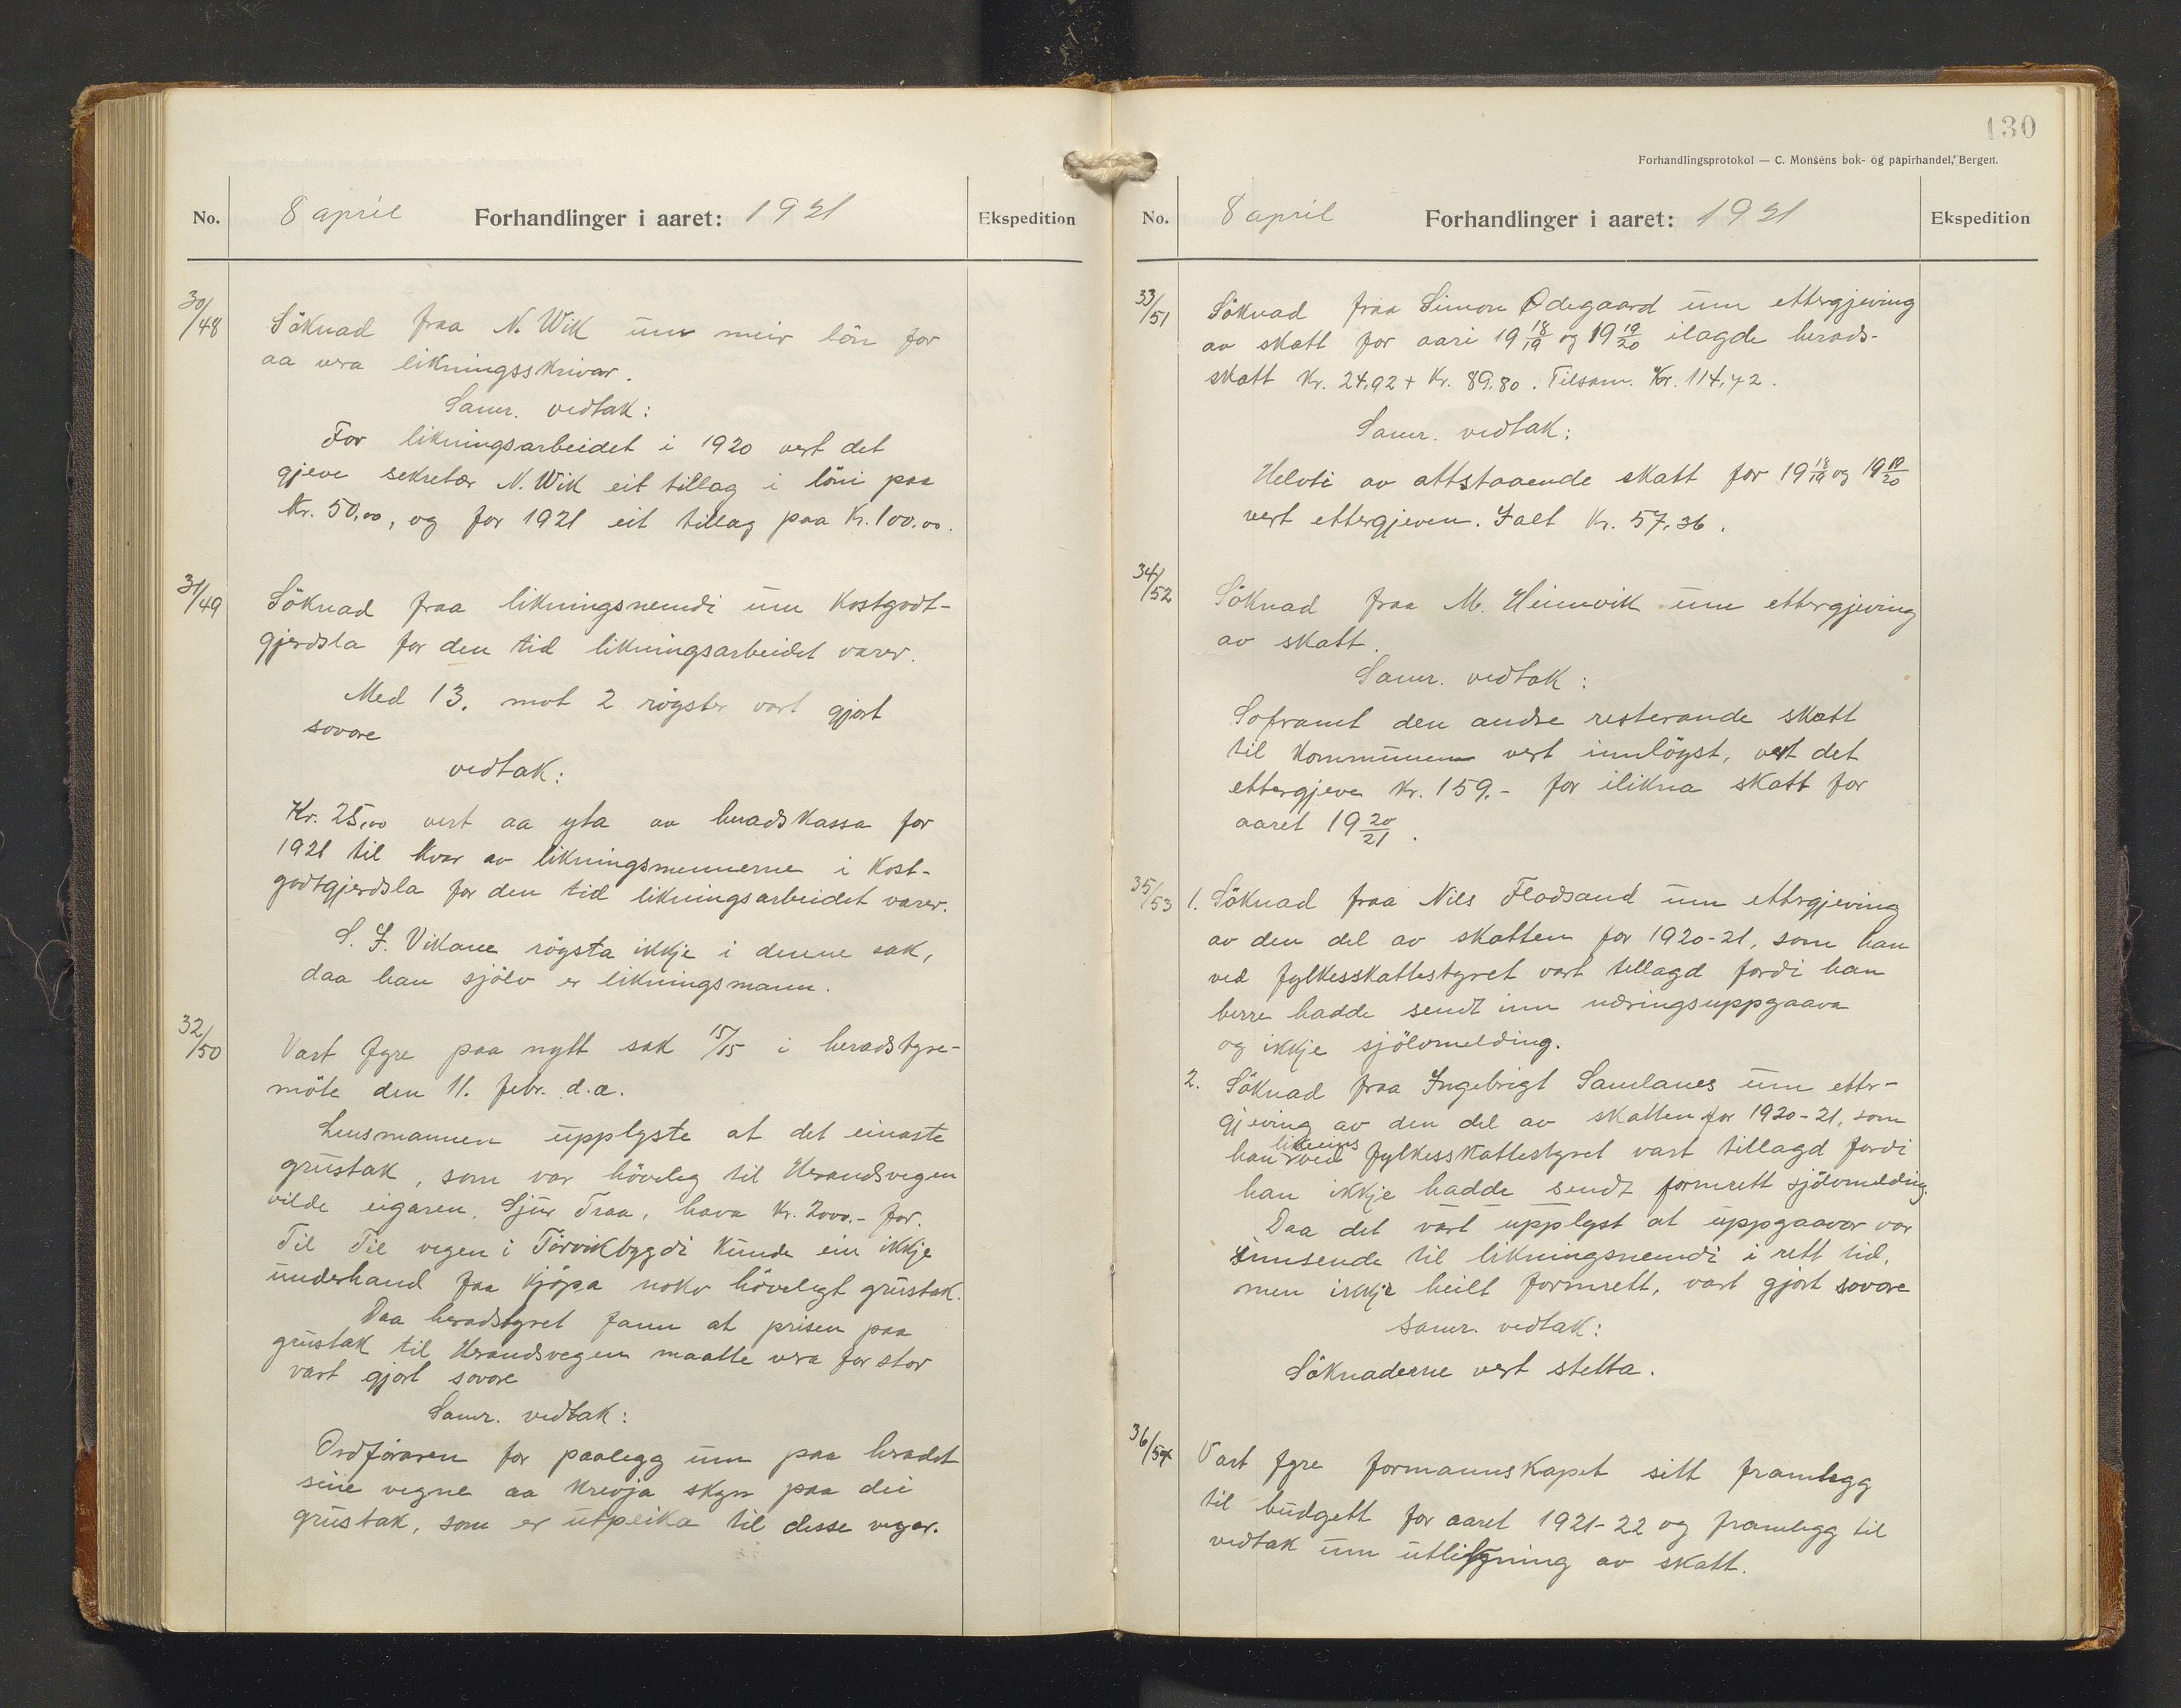 No.
8 april
Forhandlinger i aaret: 1921
Ekspedition
30/48
Söknad fraa N. Wik um meir lön for
aa vera likningsskrivar.
Samr. vedtak:
For likningsarbeidet i 1920 vert det
gjeve sekretær N. Wik eit tillag i löni paa
Kr. 50,00, og for 1921 eit tillag paa Kr. 100.00.
31/49
Söknad fraa likningsnemdi um Kostgodt-
gjerdsla for den tid likningsarbeidet varer.
Med 13. mot 2 röyster vart gjort
sovore
vedtak:
Kr. 25,00 vert aa yta av heradskassa for
1921 til kvar av likningsmennerne i Kost-
godtgjerdsla for den tid likningsarbeidet varer.
S. J. Vikane röysta ikkje i denne sak,
daa han sjölv er likningsmann.
32/50
Vart fyre paa nytt sak 15/15 i heradstyre-
möte den 11. febr. d.a.
Lensmannen upplyste at det einaste
grustak, som var höveleg til Herandsvegen
vilde eigaren, Sjur Traa, hava Kr. 2000.- for.
Til Til vegen i Törvikbygdi kunde ein ikkje
underhand faa kjöpa nokr hövelegt grustak.
Daa heradstyret fann at prisen paa
grustak til Herandsvegen maatte vera for stor
vart gjort sovore
Samr. vedtak:
Ordföraren fær paalegg um paa heradet
sine vegne aa krevja skyn paa dei
grustak, som er utpeika til desse vegar.
130
Forhandlingsprotokol — C. Monsens bok- og papirhandel, Bergen.
No.
8 april
Forhandlinger i aaret: 1921
Ekspedition
33/51
Söknad fraa Simon Ödegaard um ettergjeving
av skatt for aari 19 18/19 og 19 19/20 ilagde herads-
skatt Kr. 24,92 + Kr. 89,80. Tilsam. Kr. 114,72.
Samr. vedtak:
Helvti av attstaaende skatt for 19 18/19 og 19 19/20
vert ettergjeven. Ialt Kr. 57,36.
34/52
Söknad fraa M. Heimvik um ettergjeving
av skatt.
Samr. vedtak:
Soframt den andre resterande skatt
til Kommunen vert innlöyst, vert det
ettergjeve Kr. 159.- for ilikna skatt for
aaret 19 20/21.
35/53
1. Söknad fraa Nils Fladsand um ettergjeving
av den del av skatten for 1920-21, som han
ved fylkesskattestyret vart tillagd fordi han
berre hadde sendt inn næringsuppgaava
og ikkje sjölvmelding.
2. Söknad fraa Ingebrigt Samlanes um etter-
gjeving av den del av skatten for 1920-21, som
likeeins
han ved fylkesskattestyret vart tillagd fordi
han ikkje hadde sendt formrett sjölvmelding.
Daa det vart upplyst at uppgaavor var
innsende til likningsnemdi i rett tid,
men ikkje heilt formrett, vart gjort sovore
samr. vedtak:
Söknaderne vert stetta.
36/54
Vart fyre formannskapet sitt framlegg
til budgett for aaret 1921-22 og framlegg til
vedtak um utligning av skatt.